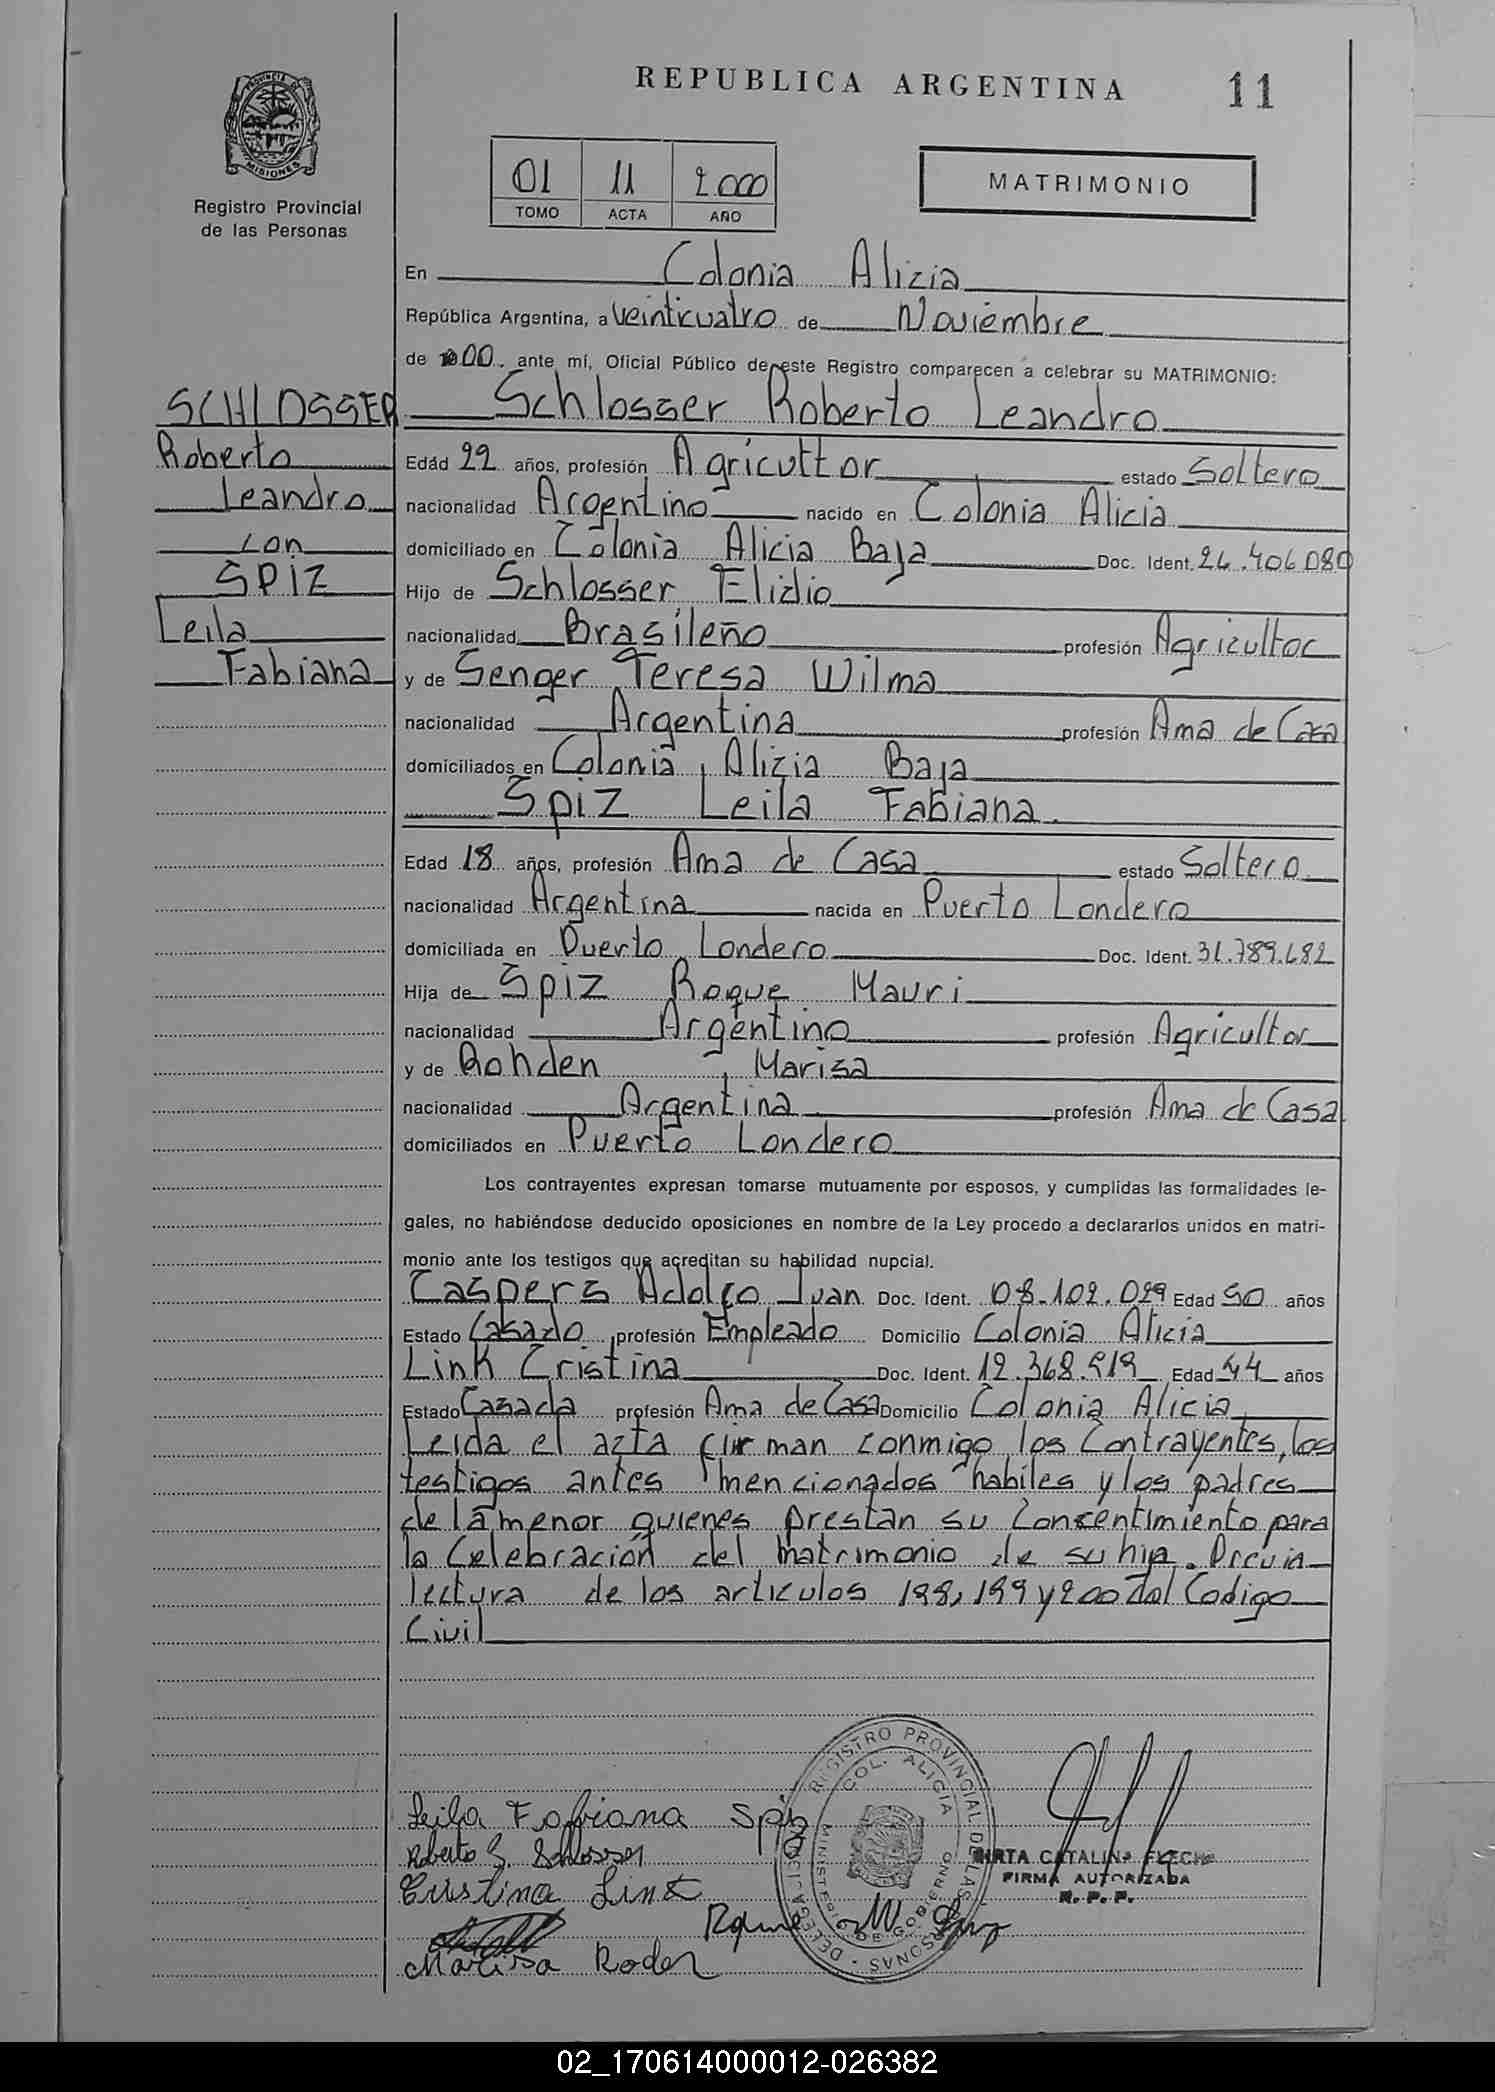 REPUBLICA ARGENTINA 11
PROVINCIA DE MISIONES
Registro Provincial
de las Personas
01 11 2000
TOMO ACTA AÑO
MATRIMONIO
En Colonia Alicia
República Argentina, a veinticuatro de Noviembre
de 00 ante mí, Oficial Público de este Registro comparecen a celebrar su MATRIMONIO:
SCHLOSSER
Roberto
Leandro
con
SPIZ
Leila
Fabiana
Schlosser Roberto Leandro
Edad 22 años, profesión Agricultor estado Soltero
nacionalidad Argentino nacido en Colonia Alicia
domiciliado en Colonia Alicia Baja Doc. Ident. 26.406.080
Hijo de Schlosser Elidio
nacionalidad Brasileño profesión Agricultor
y de Senger Teresa Wilma
nacionalidad Argentina profesión Ama de Casa
domiciliados en Colonia Alicia Baja
Spiz Leila Fabiana
Edad 18 años, profesión Ama de Casa estado Soltero
nacionalidad Argentina nacida en Puerto Londero
domiciliada en Puerto Londero Doc. Ident.
Hija de Spiz Roque Mauri
nacionalidad Argentino profesión Agricultor
y de Rohden Marisa
nacionalidad Argentina profesión Ama de Casa
domiciliados en Puerto Londero
Los contrayentes expresan tomarse mutuamente por esposos, y cumplidas las formalidades le-
gales, no habiéndose deducido oposiciones en nombre de la Ley procedo a declararlos unidos en matri-
monio ante los testigos que acreditan su habilidad nupcial.
Caspers Adolfo Juan Doc. Ident. 08.102.029 Edad 50 años
Estado Casado profesión Empleado Domicilio Colonia Alicia
Link Cristina Doc. Ident. 12.368.919 Edad 44 años
Estado Casada profesión Ama de Casa Domicilio Colonia Alicia
Leida el acta firman conmigo los Contrayentes, los
testigos antes mencionados habiles y los padres
de la menor quienes prestan su Consentimiento para
la Celebración del matrimonio de su hija. Previa
lectura de los articulos 198, 199 y 200 del Codigo
Civil
REGISTRO PROVINCIAL DE LAS PERSONAS - DELEGACION
COL. ALICIA
MINISTERIO DE GOBIERNO
Leila Fabiana Spiz
Roberto L. Schlosser
Cristina Link
Roque M. Spiz
Marisa Roden
MIRTA CATALINA FLECK
FIRMA AUTORIZADA
R. P. P.
02_170614000012-026382